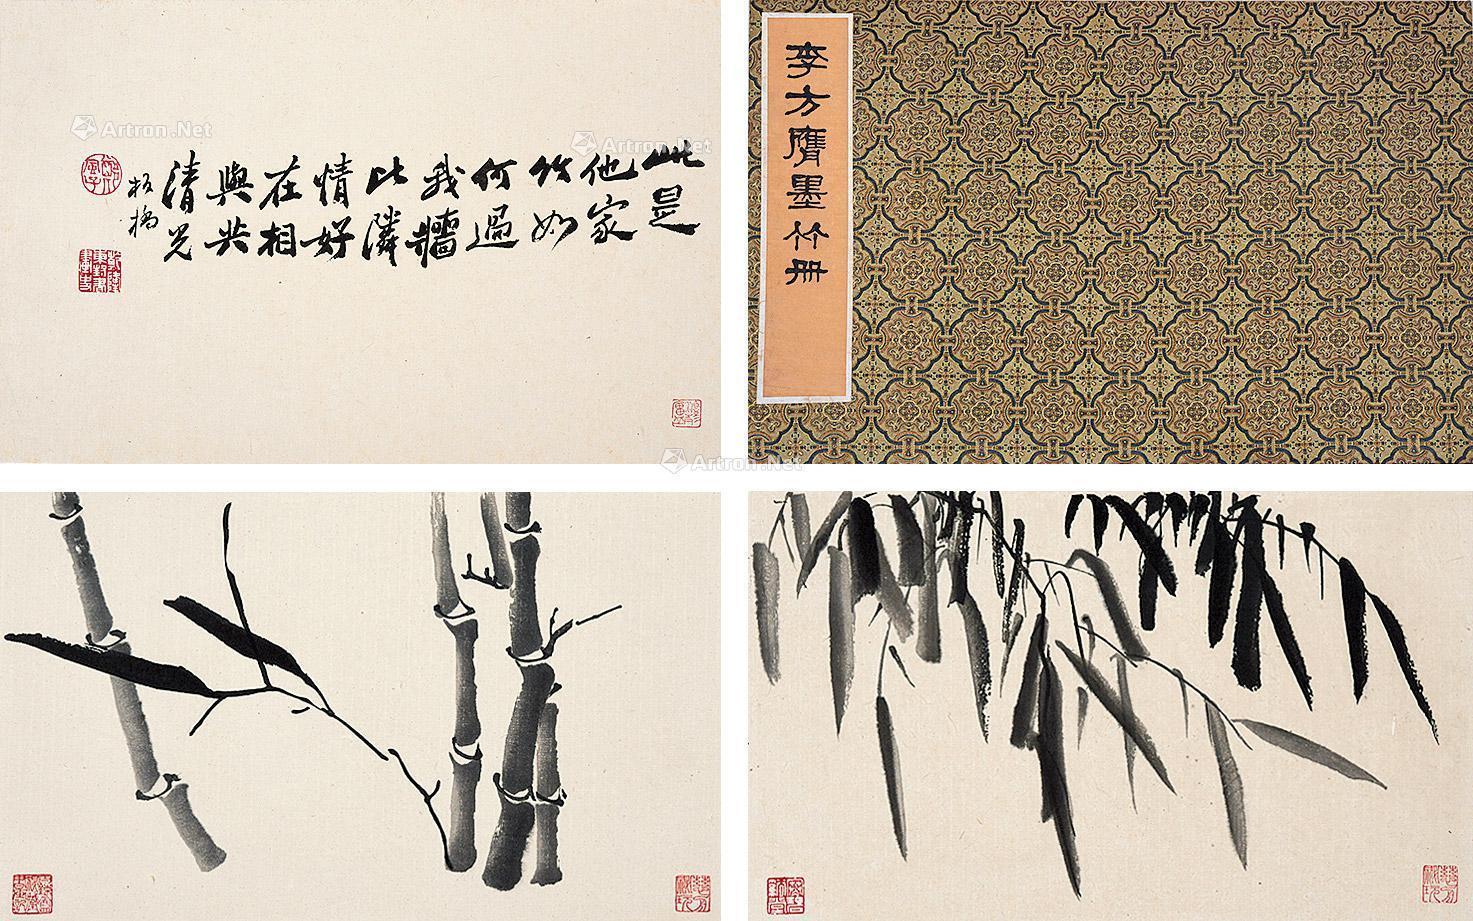 此是
他家
竹如
何過
我牆
比隣
情好
在相
與共
清光
板橋
李方膺墨竹册
Artron.Net
Artron.Net
Artron.Net